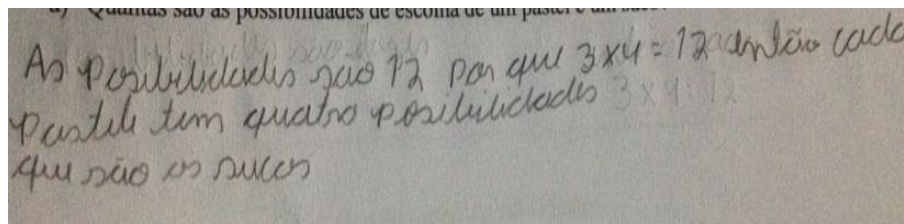 a) Quantas são as possibilidades de escolha de um pastel e um suco
As posibilidades são 12 por que 3x4=12 então cada
Pastele tem quatro posibilidades 3x4=12
que são os sucos